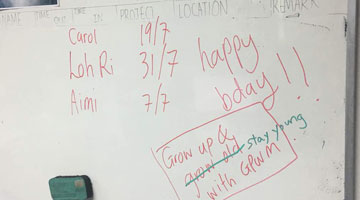 NAME TIME OUT TIME IN PROJECT LOCATION REMARK
Carol 19/7
Loh Ri 31/7
Aimi 7/7
happy
bday!!
Grow up &
grow old stay young
with GPWM.